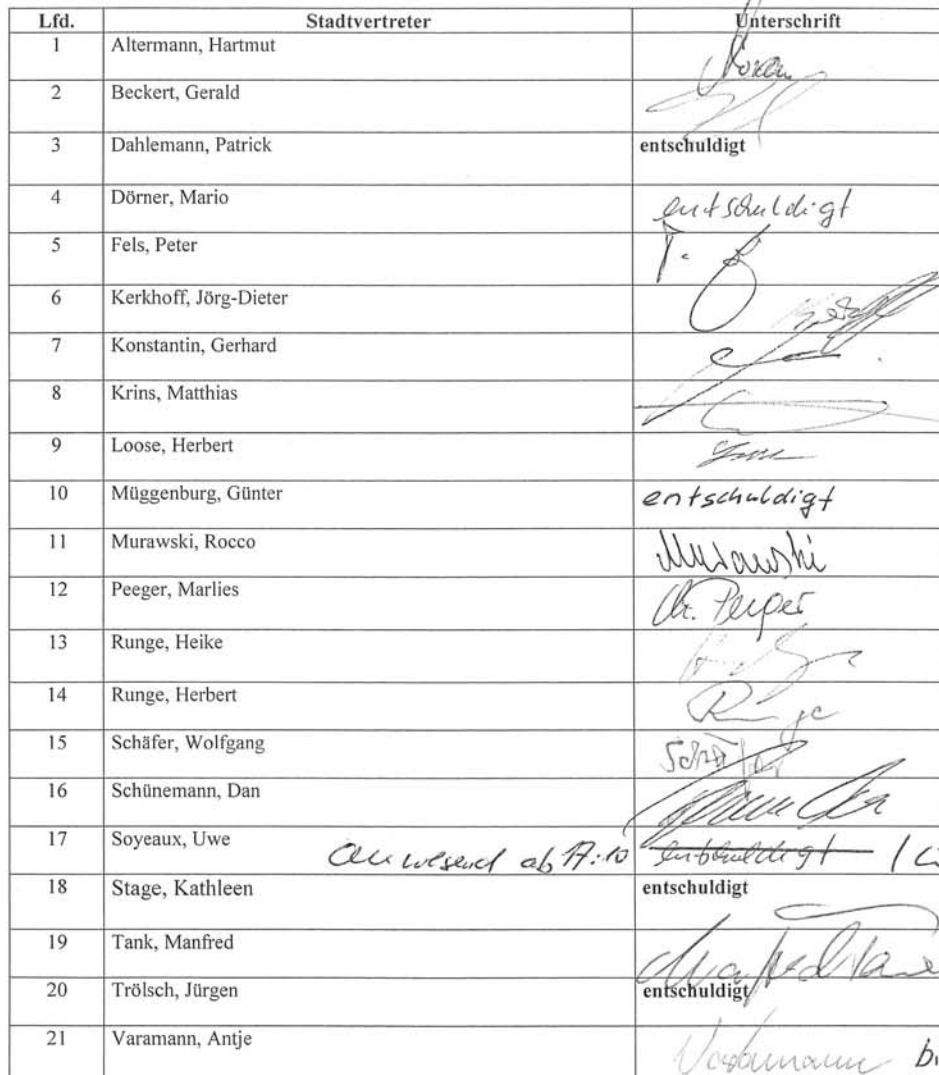 Lfd. Stadtvertreter Unterschrift
1 Altermann, Hartmut
2 Beckert, Gerald
3 Dahlemann, Patrick entschuldigt
4 Dörner, Mario entschuldigt
5 Fels, Peter
6 Kerkhoff, Jörg-Dieter
7 Konstantin, Gerhard
8 Krins, Matthias
9 Loose, Herbert
10 Müggenburg, Günter entschuldigt
11 Murawski, Rocco Murawski
12 Peeger, Marlies M. Peeger
13 Runge, Heike
14 Runge, Herbert Runge
15 Schäfer, Wolfgang Schäfer
16 Schünemann, Dan
17 Soyeaux, Uwe anwesend ab 17:10 entschuldigt
18 Stage, Kathleen entschuldigt
19 Tank, Manfred Manfred Tank
20 Trölsch, Jürgen entschuldigt
21 Varamann, Antje